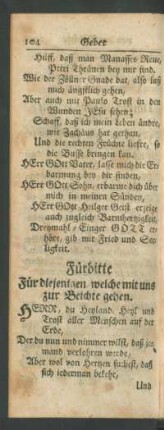 104 Gebet
Hülff, daß man Manasses Reue,
Petri Thränen bey mir find.
Wie der Zöllner Gnade bat, also laß
mich ängstlich gehen,
Aber auch wie Paulo Trost in den
Wunden JEsu sehen;
Schaff, daß ich mein Leben ändre,
wie Zachäus hat gethan,
Und die rechten Früchte liefre, so
die Busse bringen kan.
HErr GOtt Vater, lasse mich die Er-
barmung bey dir finden,
HErr GOtt Sohn, erbarme dich über
mich in meinen Sünden,
HErr GOtt Heilger Geist erzeige
auch zugleich Barmhertzigkeit,
Dreymahl Einger GOTT er-
höre, gib mir Fried und See-
ligkeit.
Fürbitte
Für diejenigen, welche mit uns
zur Beichte gehen.
HERR, du Heyland, Heyl und
Trost aller Menschen auf der
Erde,
Der du nun und nimmer wilst, daß je-
mand verlohren werde,
Aber wol von Hertzen siehest, daß
sich iederman bekehr,
Und